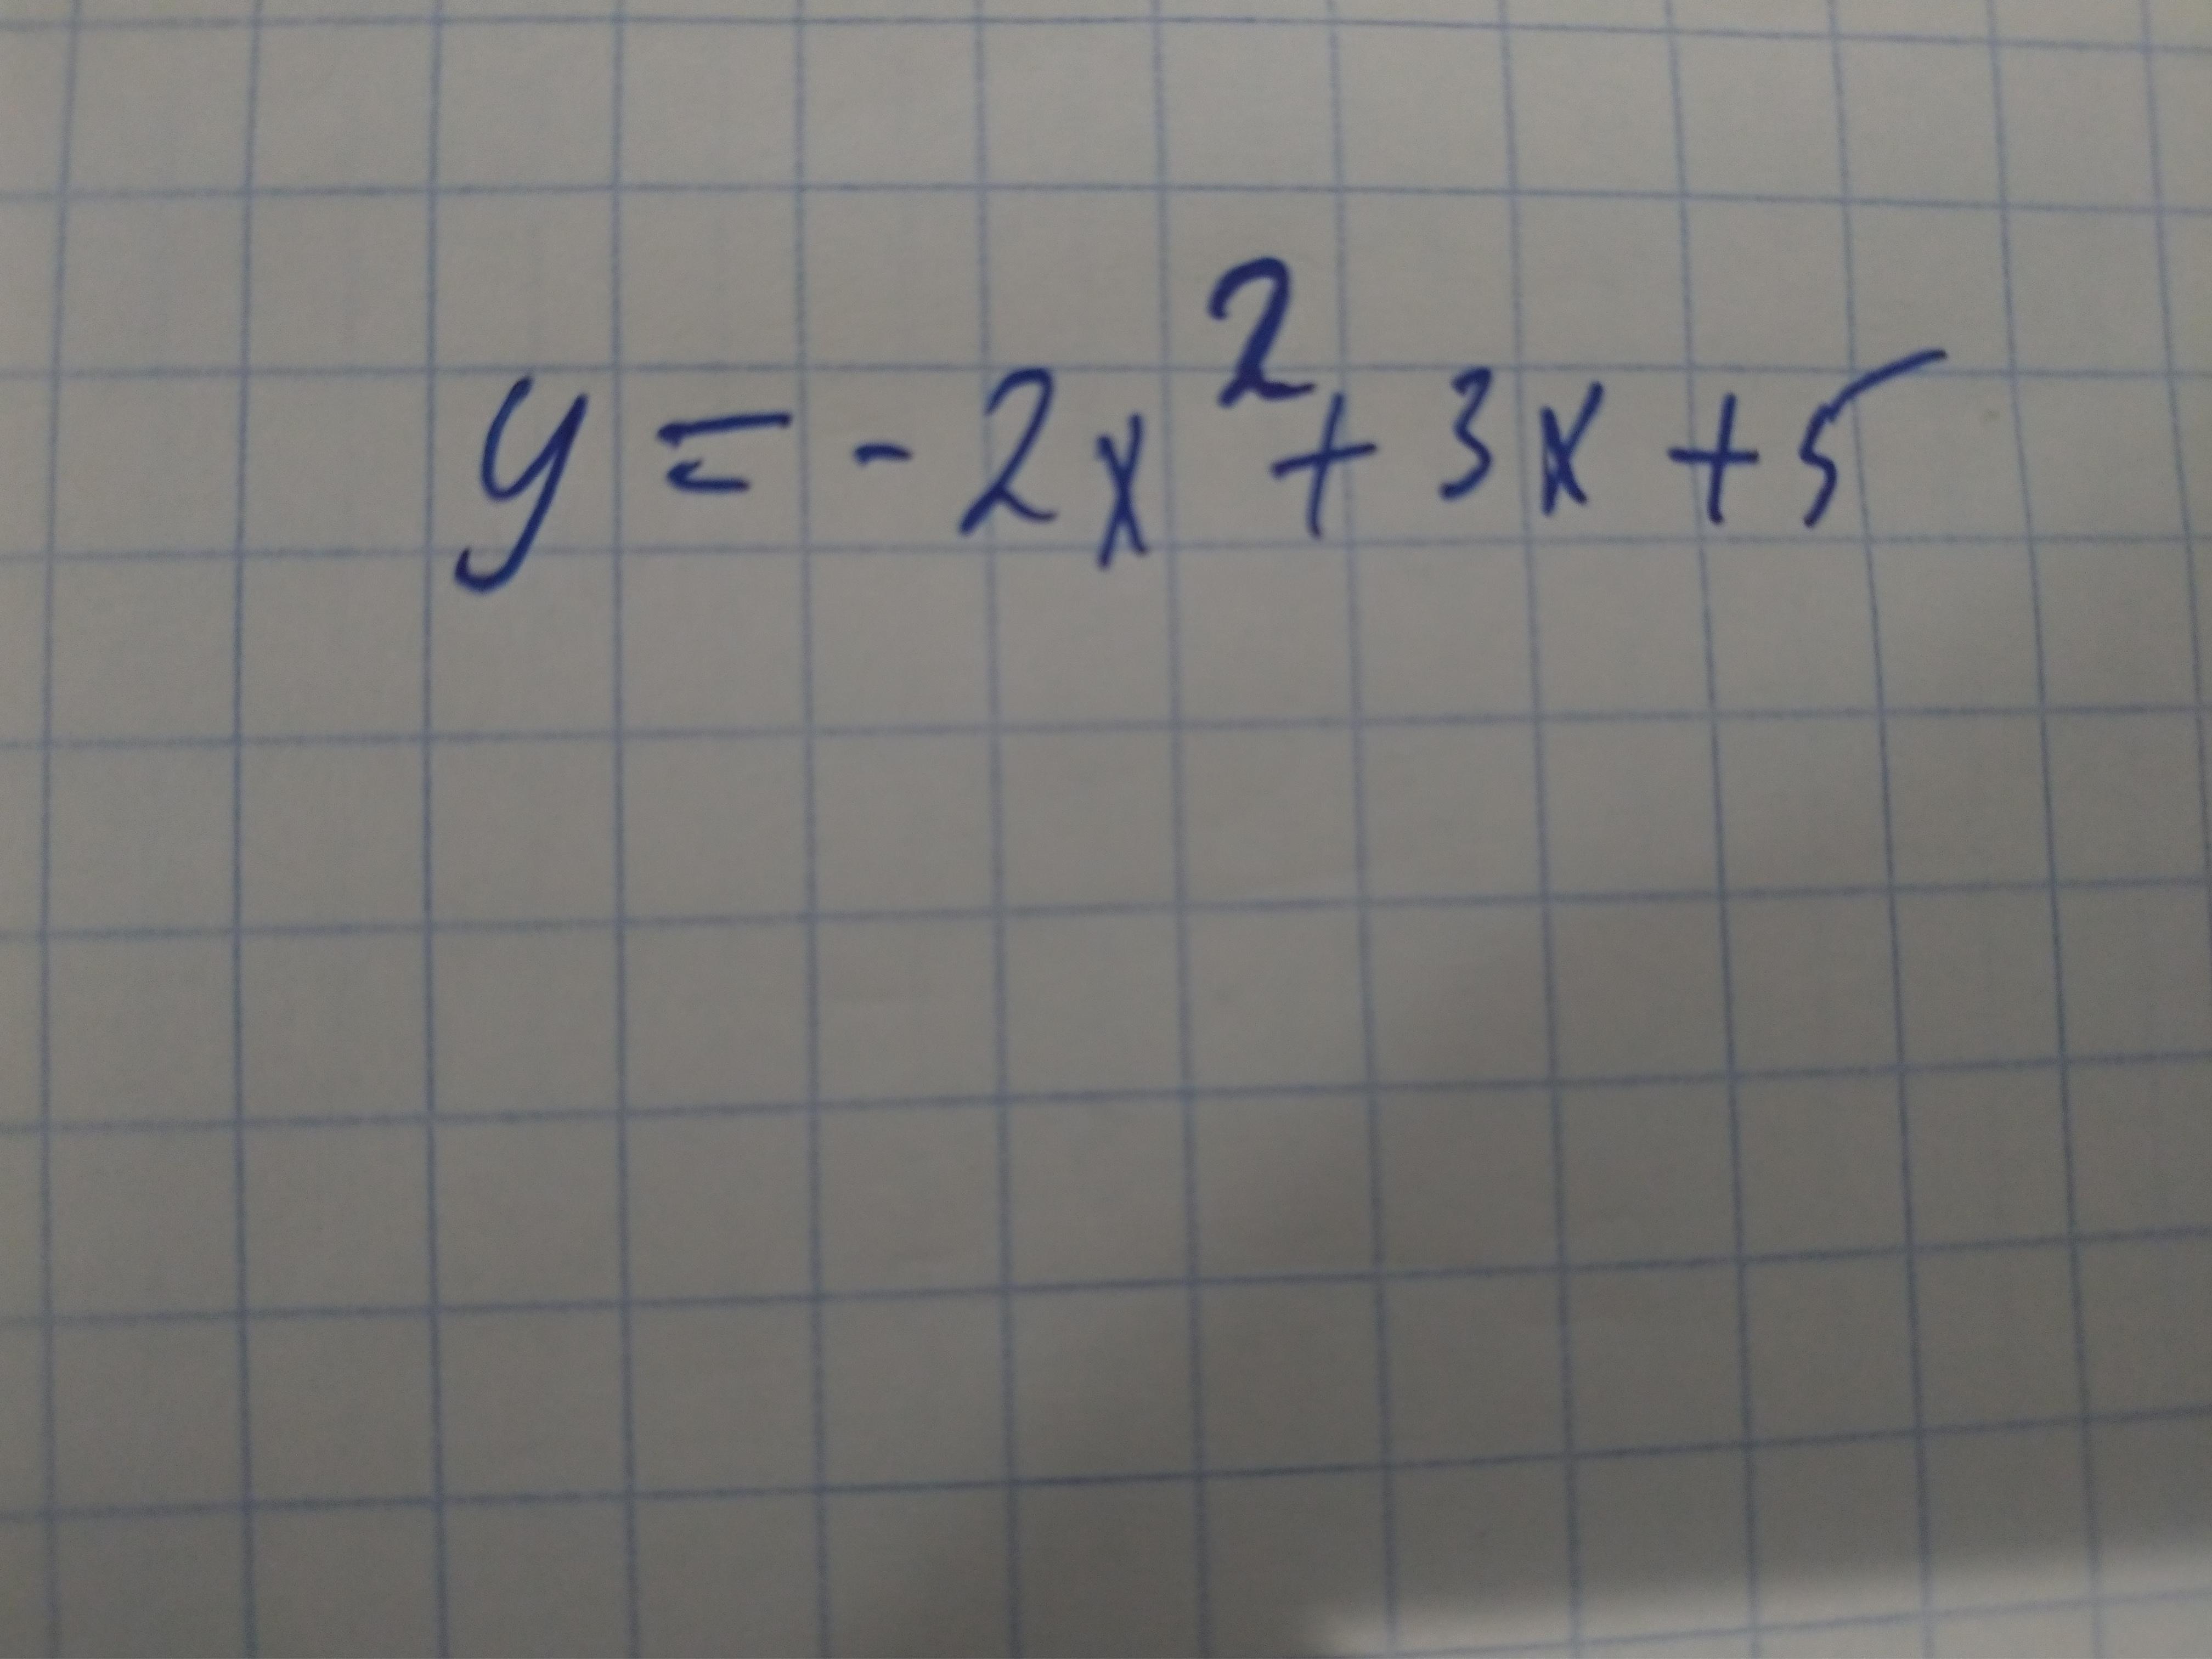 y = - 2x² + 3x + 5